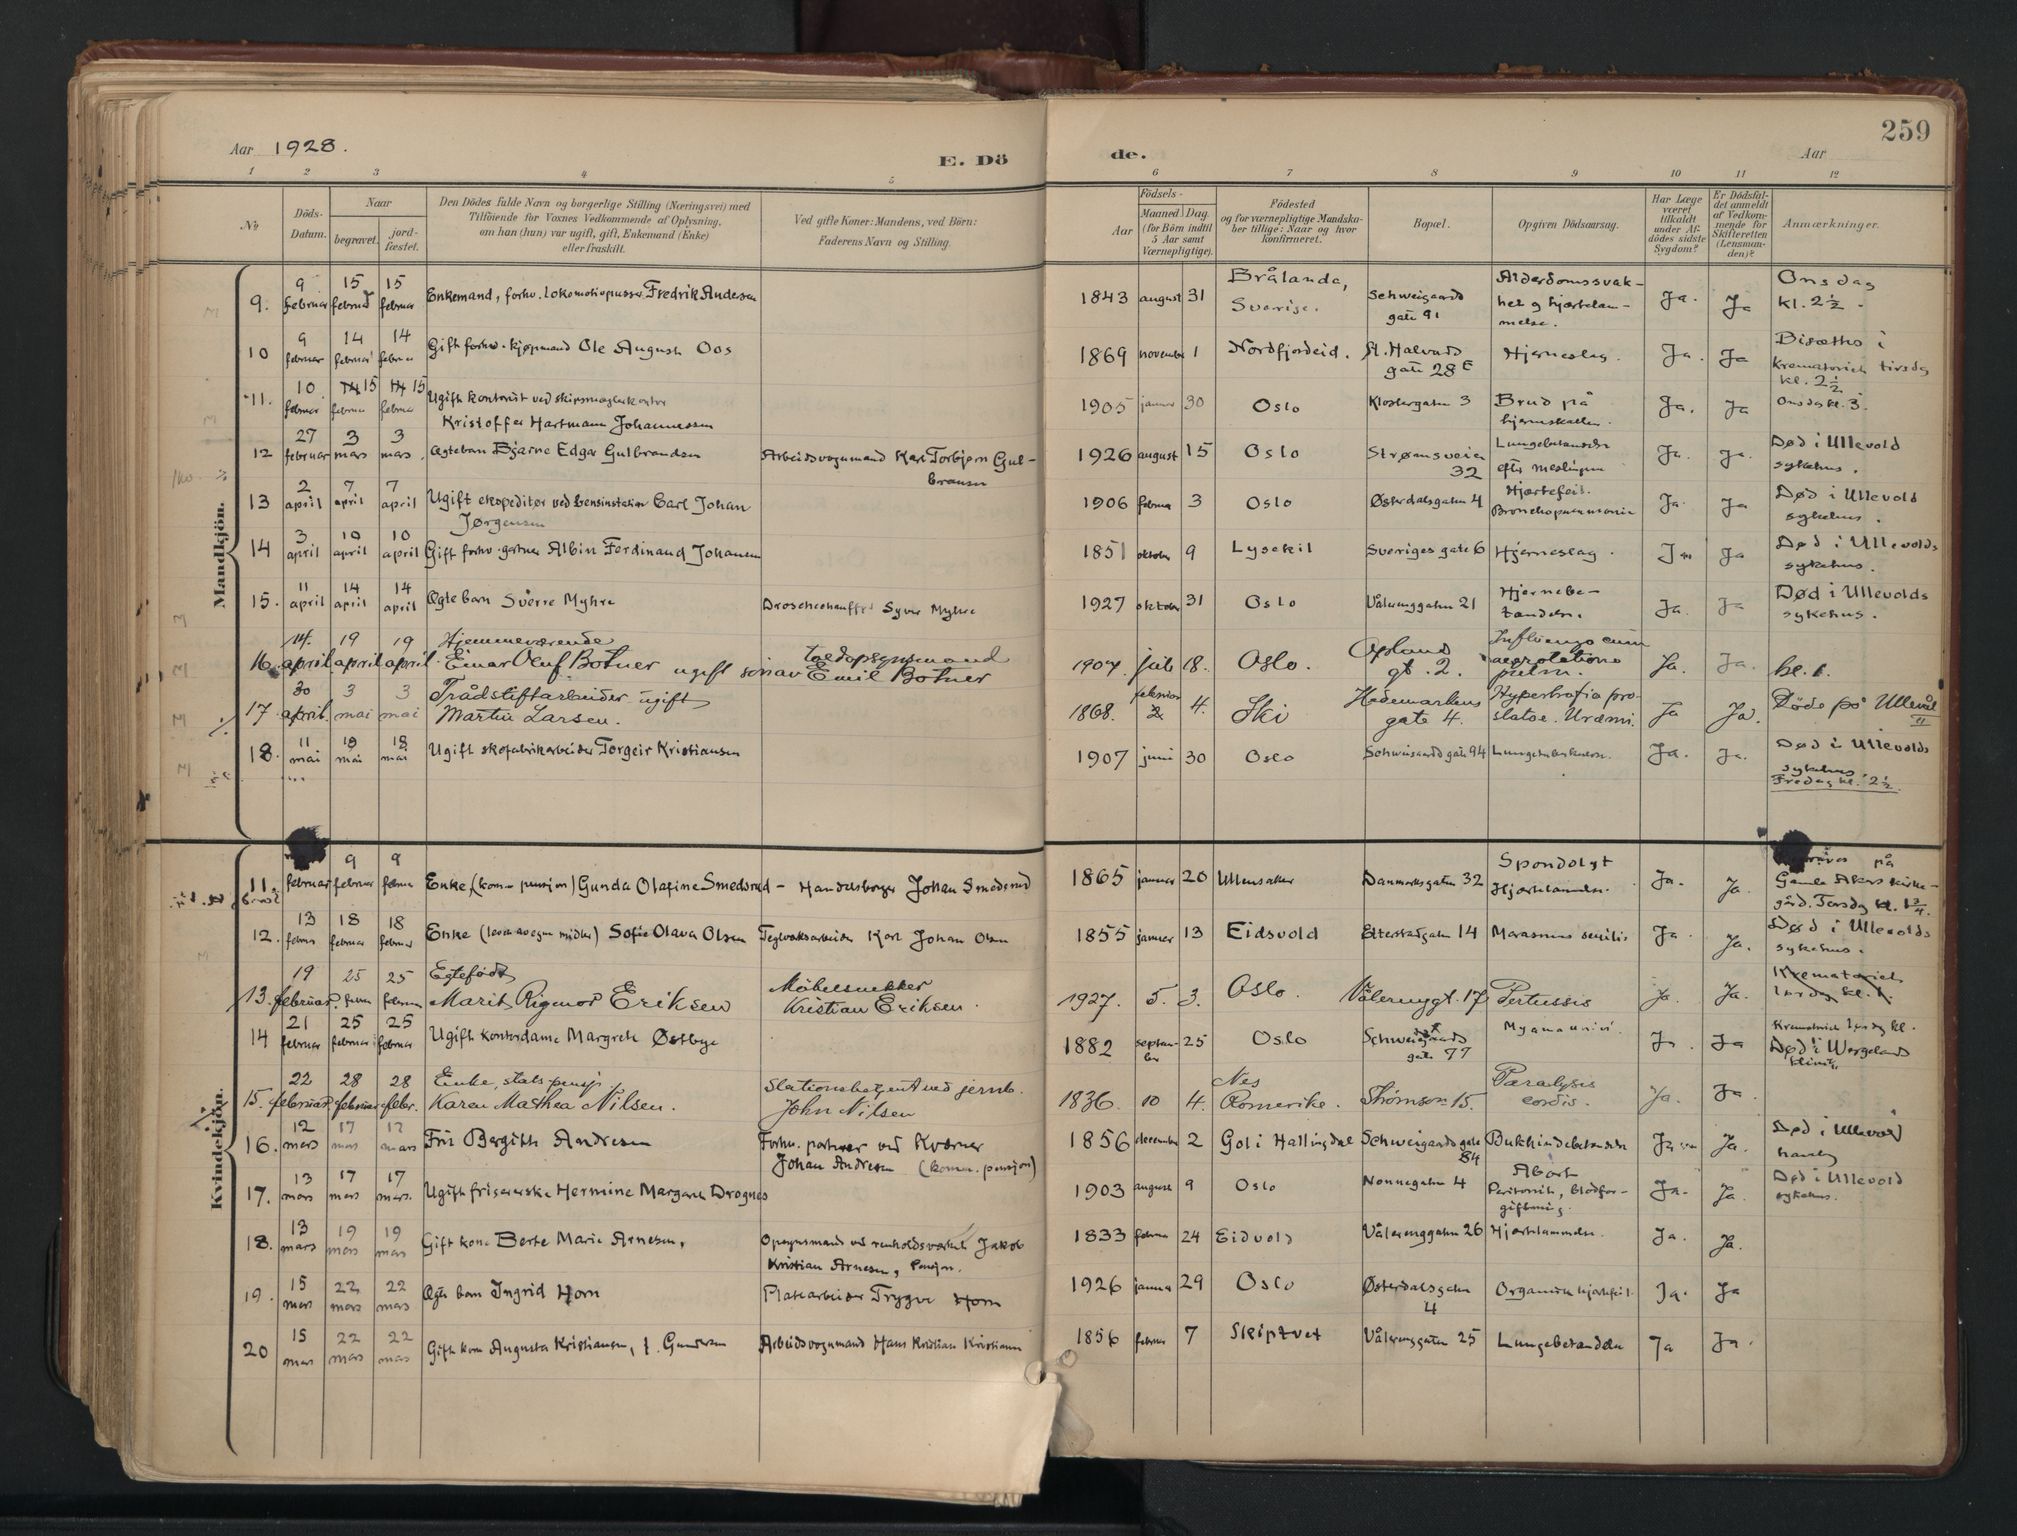 259
Aar 1928.
E. Dö
de.
Aar
1 2 3 4 5 6 7 8 9 10 11 12
Nr.
Döds-
Datum.
Naar
begravet.
jord-
fæstet.
Den Dödes fulde Navn og borgerlige Stilling (Næringsvei) med
Tilföiende for Voxnes Vedkommende af Oplysning,
om han (hun) var ugift, gift, Enkemand (Enke)
eller fraskilt.
Ved gifte Koner: Mandens, ved Börn:
Faderens Navn og Stilling.
Födsels-
Aar
Maaned
Dag.
(for Börn indtil
5 Aar samt
Værnepligtige).
Födested
og for værnepligtige Mandska-
ber tillige: Naar og hvor
konfirmeret.
Bopæl.
Opgiven Dödsaarsag.
Har Læge
været
tilkaldt
under Af-
dödes sidste
Sygdom?
Er Dödsfal-
det anmeldt
af Vedkom-
mende for
Skifteretten
(Lensman-
den)?
Anmærkninger.
Mandkjön.
9. 9 februar 15 februar 15 februar Enkemand, forhv. lokomotivpusser Fredrik Andersen 1843 august 31 Brålanda, Sverige. Schweigaards gate 91 Alderdomssvak-
het og hjertelam-
melse. Ja. Ja Onsdag
kl. 2½.
10 9 februar 14 februar 14 februar Gift forhv. kjøpmand Ole August Oos 1869 november 1 Nordfjordeid. St. Halvards gate 28 c Hjerneslag. Ja. Ja Bisættes i
Krematoriet tirsdag
kl. 2½
11. 10. februar 14 15 februar 14 15 februar Ugift kontorist ved skipsmæglerkontor
Kristoffer Hartmann Johannessen 1905 januar 30 Oslo Klostergaten 3 Brud på
hjerneskallen. Ja. Ja Onsdag kl. 3.
12 27 februar 3 mars 3 mars. Ægtebarn Bjarne Edgar Gulbrandsen Arbeidsvognmand Karl Torbjørn Gul-
bransen 1926 august 15 Oslo Strømsveien 32 Lungebetændelse
efter meslinger Ja. Ja. Død i Ullevold
sykehus.
13 2 april 7 april 7 april Ugift ekspeditør ved bensinstation Carl Johan
Jørgensen 1906 februar 3 Oslo Østerdalsgaten 4 Hjertefeil.
Bronchopneumonie Ja. Ja Død i Ullevold
sykehus.
14 3 april 10 april 10 april Gift forhv. gartner Albin Ferdinand Johansen 1851 oktober 9 Lysekil Sveriges gate 6 Hjerneslag. Ja Ja Død i Ullevolds
sykehus.
15. 11 april 14 april 14 april Ægte barn Sverre Myhre Droschechauffør Syver Myhre 1927 oktober 31 Oslo Vålerenggaten 21 Hjernebe-
tændelse. Ja. Ja Død i Ullevolds
sykehus.
16. 14. april 19 april 19 april. Hjemmeværende
Einar Oluf Botner ugift søn av toldopsynsmand
Emil Botner 1907. juli 18. Oslo. Opland
gt. 2. Influenza cum
pulm. Ja. Ja. kl. 1.
17. 30 april. 3 mai 3 mai Trådstiftarbeider ugift
Martin Larsen. 1868. februar 4. Ski Hedemarkens
gate 4. Hypertrofia pro-
statae. Uræmi. Ja Ja. Døde på Ullevål
18. 11 mai 18 mai 18 mai Ugift skofabrikarbeider Torgeir Kristiansen 1907 juni 30 Oslo Schweigaards gate 94 Lungetuberkulose. Ja. Ja. Død i Ullevolds
sykehus
Fredag kl. 2½.
Kvindekjön.
11. februar 9 februar 9 februar Enke (kom. pensjon) Gunda Olafine Smedsrud - Handelsborger Johan Smedsrud 1865 januar 20 Ullensaker Danmarksgaten 32 Spondolyt
Hjertelammelse. Ja. Ja. på
Gamle Akers kirke-
gård. Torsdag kl. 1¾.
12. 13 februar 18 februar 18 februar Enke (lever av egne midler) Sofie Olava Olsen Teglverksarbeider Karl Johan Olsen 1855 januar 13 Eidsvold Etterstadgaten 14 Marasmus senilis Ja. Ja. Død i Ullevolds
sykehus.
13. 19 februar. 25 februar 25 februar Egtefødt
Marit Rigmor Eriksen Møbelsnekker
Kristian Eriksen. 1927. 5. 3. Oslo. Vålerenggt. 17 Pertussis Ja. Ja. Krematoriet
lørdag kl. 1.
14 21 februar 25 februar 25 februar Ugift kontordame Margrete Østbye 1882 septem-
ber 25 Oslo Schweigaards
gate 77 Ja. Ja Krematoriet lørdag kl.
Død i Wergelands
klinik
15. 22 februar. 28 februar 28 febr. Enke, stats pensj.
Karen Mathea Nilsen. Stationsbetjent ved jernb.
John Nilsen 1836. 10 4. Nes
Romerike. 15. Paralysis
cordis. Ja. Ja
16. 12 mars 17 mars 17 mars Fru Bergitte Andresen Forhv. portner ved Kværner
Johan Andresen (komm. pensjon) 1856 december 2 Gol i Hallingdal Schweigaards gate
84 Bukhindebetændelse Ja Ja. Død i Ullevål
17. 13 mars 17 mars 17 mars. Ugift friserske Hermine Margaret Drognes 1903 august 9 Oslo Nonnegaten 4 Abort
Peritonit, blodfor-
giftning. Ja. Ja. Død i Ullevold
sykehus.
18. 13 mars 19 mars 19 mars Gift kone Berte Marie Arnesen, Opsynsmand ved renholdsverket Jakob
Kristian Arnesen, Pensjon. 1833 februar 24 Eidvold Vålerenggaten 26 Hjertelammelse. Ja. Ja.
19. 15 mars 22 mars 22 mars Ægte barn Ingrid Horn Platearbeider Trygve Horn 1926 januar 29 Oslo Østerdalsgaten
4 Organisk hjertefeil. Ja. Ja
20 15 mars 22 mars 22 mars Gift kone Augusta Kristiansen, f. Gundersen Arbeidsvognmand Hans Kristian Kristiansen 1856 februar 7 Skiptvet Vålerenggaten 25 Lungebetændelse Ja Ja.